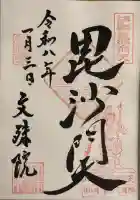 毘沙門天
令和八年
一月三日
文殊院